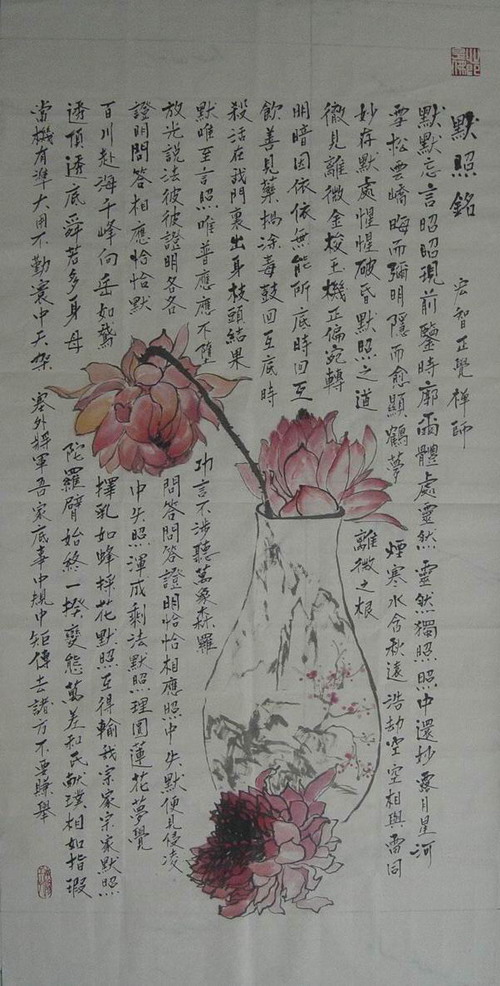 默照銘 宏智正覺禪師
默默忘言昭昭現前鑒時廓爾體處靈然靈然獨照照中還抄露月星河
雪松雲嶠晦而彌明隱而愈顯鶴夢煙寒水含秋遠浩劫空空相與雷同
妙存默處惺惺破昏默照之道離微之根
徹見離微金梭玉機正偏宛轉
明暗因依依無能所底時回互
飲善見藥撾塗毒鼓回互底時
殺活在我門裏出身枝頭結果
默唯至言照唯普應應不墮功言不涉聽萬象森羅
放光說法彼彼證明各各問答問答證明恰恰相應照中失默便見侵凌
證明問答相應恰恰默中失照渾成剩法默照理圓蓮花夢覺
百川赴海千峰向岳如鵞擇乳如蜂採花默照互得輸我宗家宗家默照
透頂透底舜若多身母陀羅臂始終一揆變態萬差和氏献璞相如指瑕
當機有準大用不勤寰中天塞外將軍吾家底事中規中矩傳去諸方不要賺舉